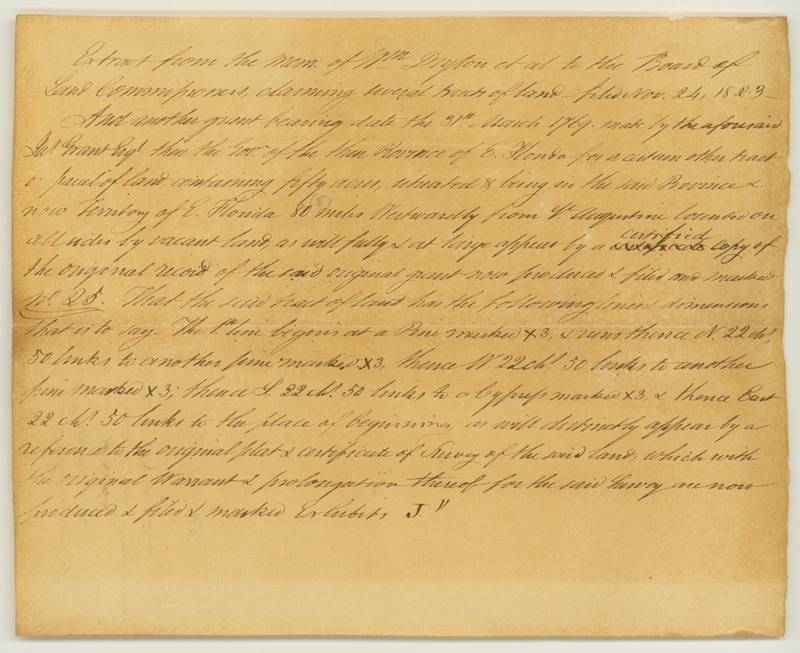 Extract from the Mem. of Wm Drayton et al to the Board of
Land Commissioners, claiming several tracts of land - filed Nov. 24, 1823 -
And another grant bearing date the 31st March 1769. made by the aforesaid
Jas Grant Esqr then the Govr of the then Province of E. Florida for a certain other tract
or parcel of land containing fifty acres, situated & being in the said Province &
now Territory of E. Florida 80 miles Westwardly from St Augustine bounded on
all sides by vacant land, as will fully & at large appear by a certified copy of
the original record of the said original grant now produced & filed and marked
No. 25. That the said tract of land has the following lines & dimensions
that is to say - The 1st line begins at a Pine marked X3, & runs thence N. 22 chs.
50 links to another pine marked X3, thence W. 22 chs. 50 links to another
pine marked X3; thence S. 22 chs. 50 links to a Cypress marked X3, & thence East
22 chs. 50 links to the place of beginning, as will distinctly appear by a
reference to the original plat & certificate of Survey of the said land, which with
the original Warrant & prolongation thereof for the said Survey are now
produced & filed & marked Exhibits J "